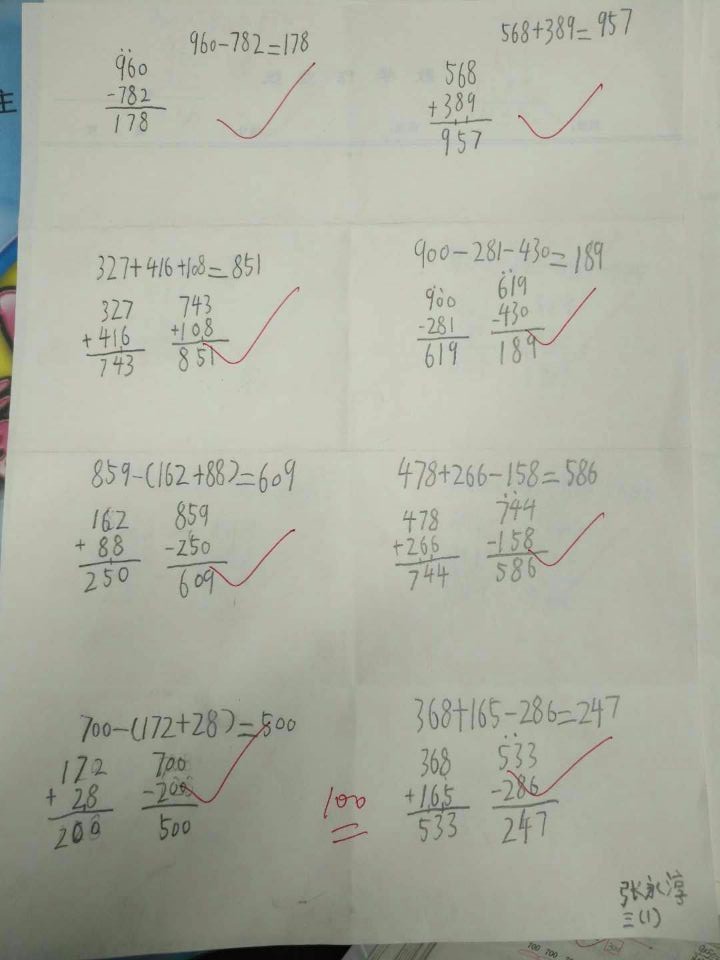 960-782=178
960
-782
178
568+389=957
568
+389
957
327+416+108=851
327
+416
743
743
+108
851
900-281-430=189
900
-281
619
619
-430
189
859-(162+88)=609
162
+88
250
859
-250
609
478+266-158=586
478
+266
744
744
-158
586
700-(172+28)=500
172
+28
200
700
-200
500
368+165-286=247
368
+165
533
533
-286
247
100
张永淳
三(1)